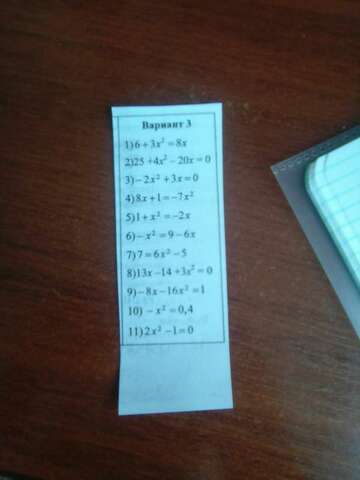 Вариант 3
1) 6 + 3x² = 8x
2) 25 + 4x² − 20x = 0
3) − 2x² + 3x = 0
4) 8x + 1 = −7x²
5) 1 + x² = −2x
6) − x² = 9 − 6x
7) 7 = 6x² − 5
8) 13x − 14 + 3x² = 0
9) − 8x − 16x² = 1
10) − x² = 0,4
11) 2x² − 1 = 0